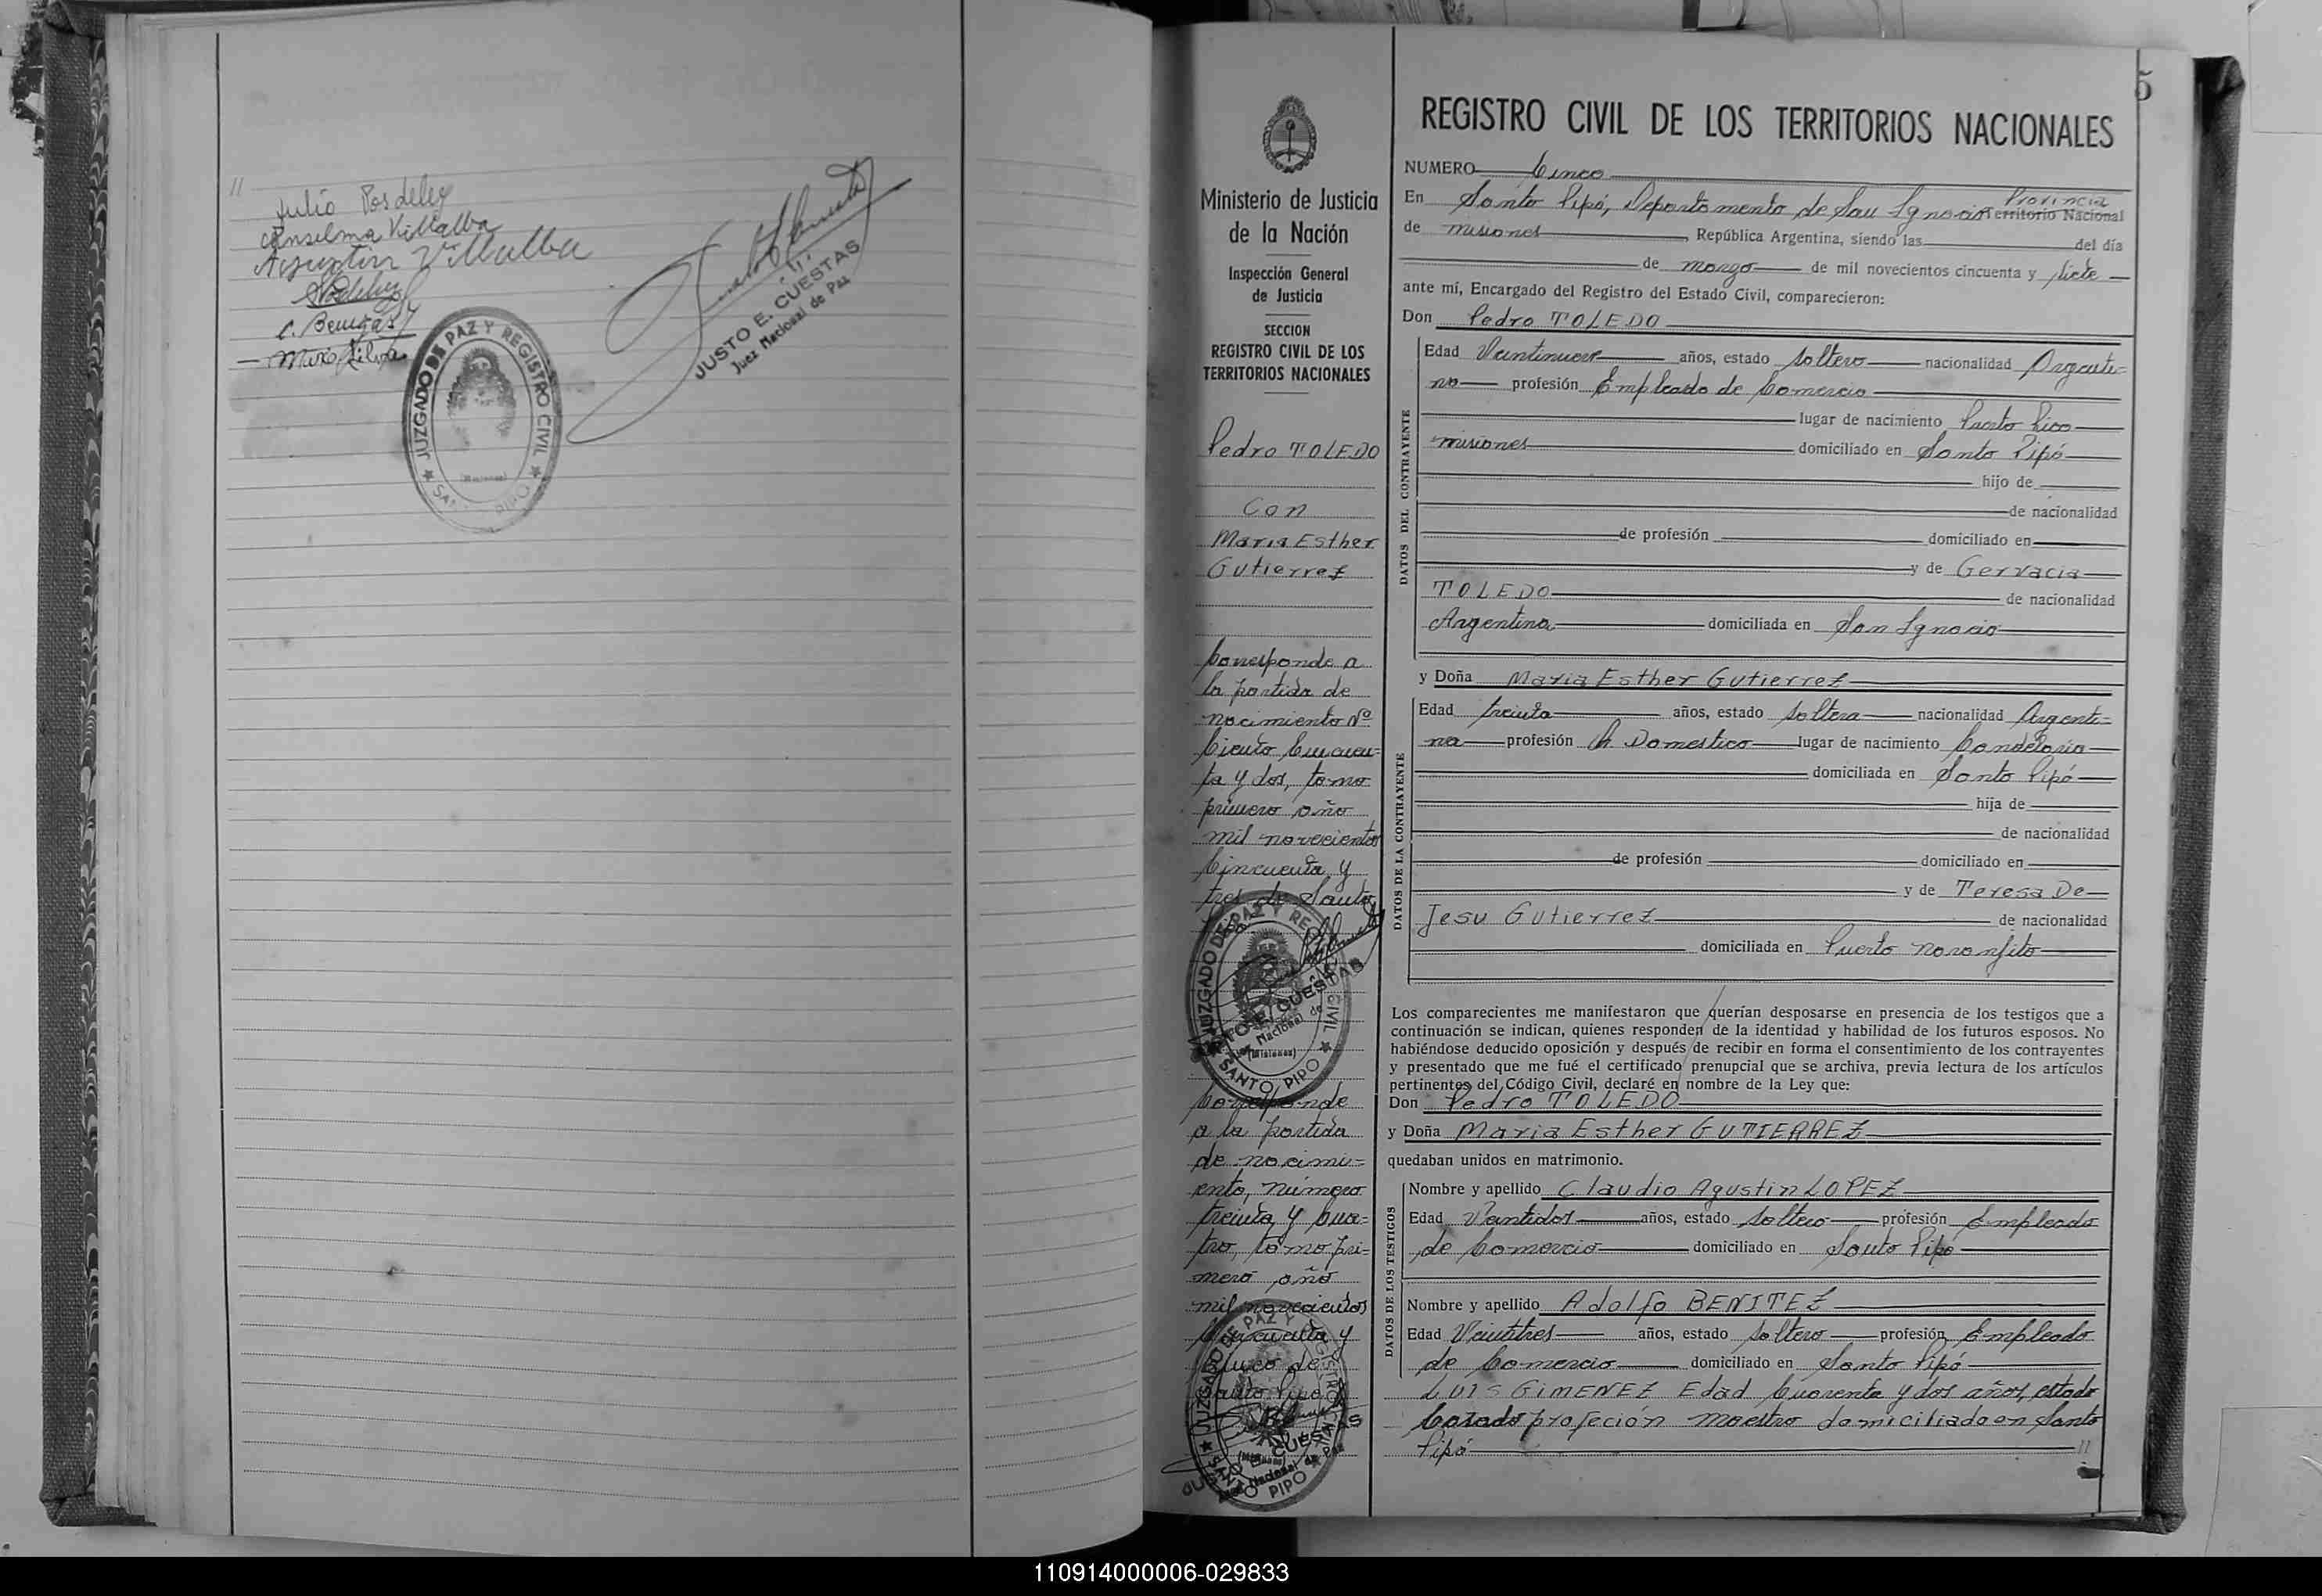 //
Julio Posdeley
Anselma Villalba
Agustin Villalba
C. Benegas
JUSTO E. CUESTAS
Juez Nacional de Paz
JUZGADO DE PAZ Y REGISTRO CIVIL
SANTO PIPO
(Misiones)
5
Ministerio de Justicia
de la Nación
Inspección General
de Justicia
SECCION
REGISTRO CIVIL DE LOS
TERRITORIOS NACIONALES
Pedro TOLEDO
Con
Maria Esther
Gutierrez
Corresponde a
la partida de
nacimiento Nº
Ciento Cincuen=
ta y dos, tomo
primero año
mil novecientos
Cincuenta y
tres de Santo
JUZGADO DE PAZ Y REGISTRO CIVIL
JUSTO E. CUESTAS
Juez Nacional de
(Misiones)
SANTO PIPO
Corresponde
a la partida
de nacimi=
ento, número
treinta y cua=
tro, tomo pri=
mero año
mil novecientos
Cincuenta y
Cinco de
Santo Pipó
JUZGADO DE PAZ Y REGISTRO
JUSTO E. CUESTAS
Juez Nacional de Paz
SANTO PIPO
REGISTRO CIVIL DE LOS TERRITORIOS NACIONALES
NUMERO Cinco
Provincia
En Santo Pipó, Departamento de San Ignacio Territorio Nacional
de Misiones, República Argentina, siendo las del día
de marzo de mil novecientos cincuenta y siete
ante mí, Encargado del Registro del Estado Civil, comparecieron:
Don Pedro TOLEDO
DATOS DEL CONTRAYENTE
Edad Veintinueve años, estado soltero nacionalidad Argenti=
no profesión Empleado de Comercio
lugar de nacimiento Puerto Rico
Misiones domiciliado en Santo Pipó
hijo de
de nacionalidad
de profesión domiciliado en
y de Gervacia
TOLEDO de nacionalidad
Argentina domiciliada en San Ignacio
y Doña Maria Esther Gutierrez
DATOS DE LA CONTRAYENTE
Edad treinta años, estado soltera nacionalidad Argenti=
na profesión Domestico lugar de nacimiento Candelaria
domiciliada en Santo Pipó
hija de
de nacionalidad
de profesión domiciliado en
y de Teresa De
Jesu Gutierrez de nacionalidad
domiciliada en Puerto Naranjito
Los comparecientes me manifestaron que querían desposarse en presencia de los testigos que a
continuación se indican, quienes responden de la identidad y habilidad de los futuros esposos. No
habiéndose deducido oposición y después de recibir en forma el consentimiento de los contrayentes
y presentado que me fué el certificado prenupcial que se archiva, previa lectura de los artículos
pertinentes del Código Civil, declaré en nombre de la Ley que:
Don Pedro TOLEDO
y Doña Maria Esther GUTIERREZ
quedaban unidos en matrimonio.
DATOS DE LOS TESTIGOS
Nombre y apellido Claudio Agustin LOPEZ
Edad Veintidos años, estado soltero profesión Empleado
de Comercio domiciliado en Santo Pipó
Nombre y apellido Adolfo BENITEZ
Edad Veintitres años, estado soltero profesión Empleado
de Comercio domiciliado en Santo Pipó
LUIS GIMENEZ Edad Cuarenta y dos años, estado
Casado profeción maestro domiciliado en Santo
Pipó //
110914000006-029833